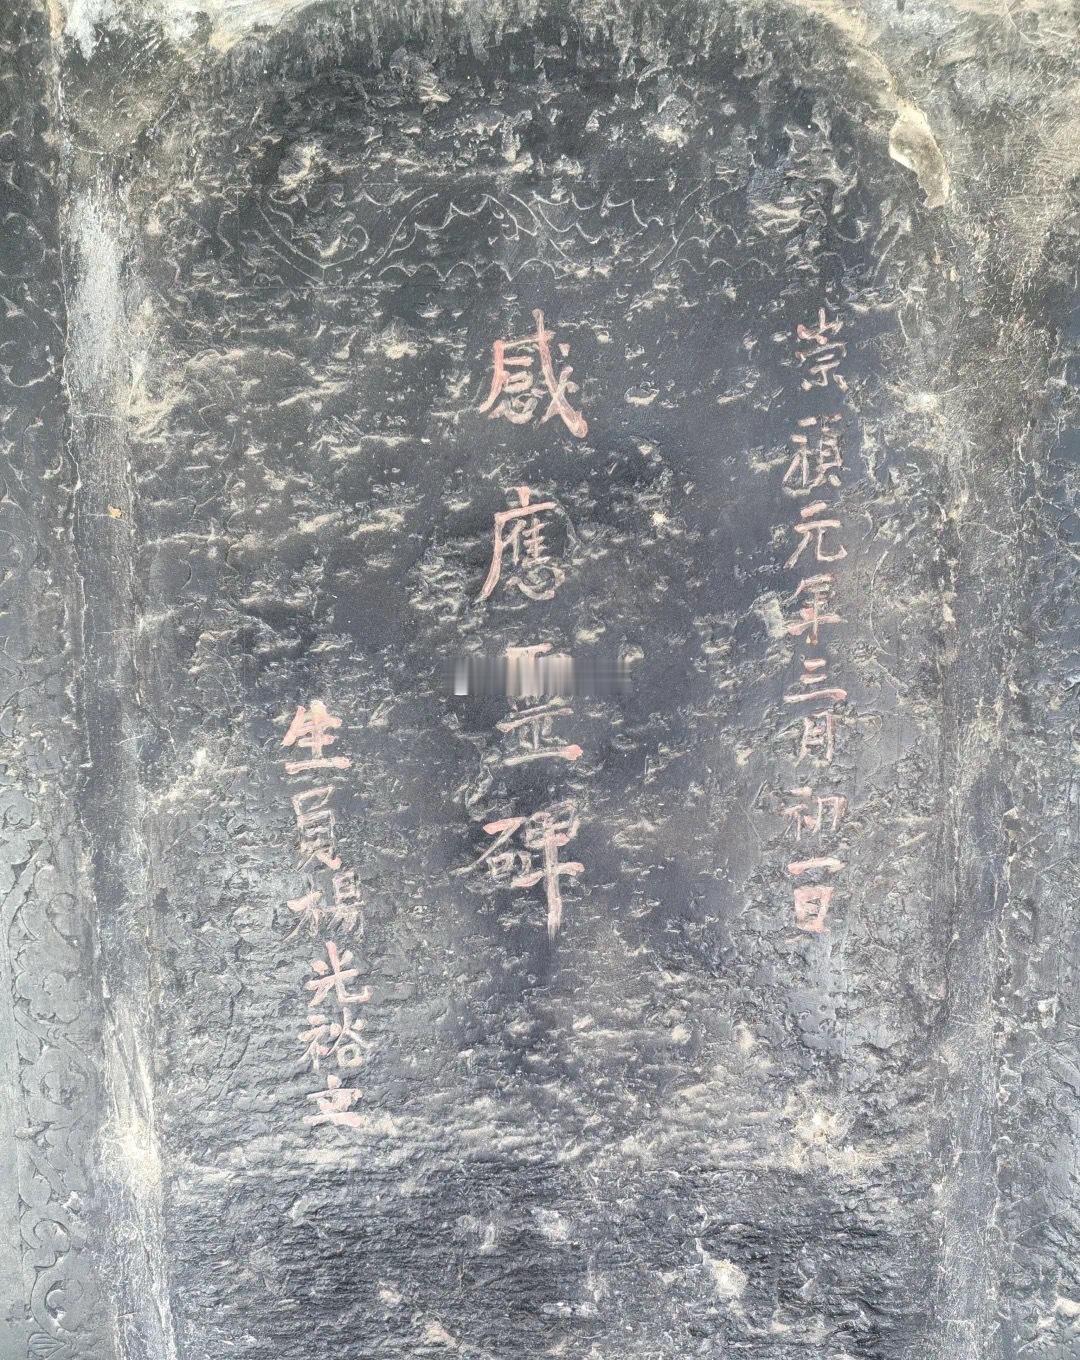 崇禎元年三月初一日
感應碑
生員楊光裕立